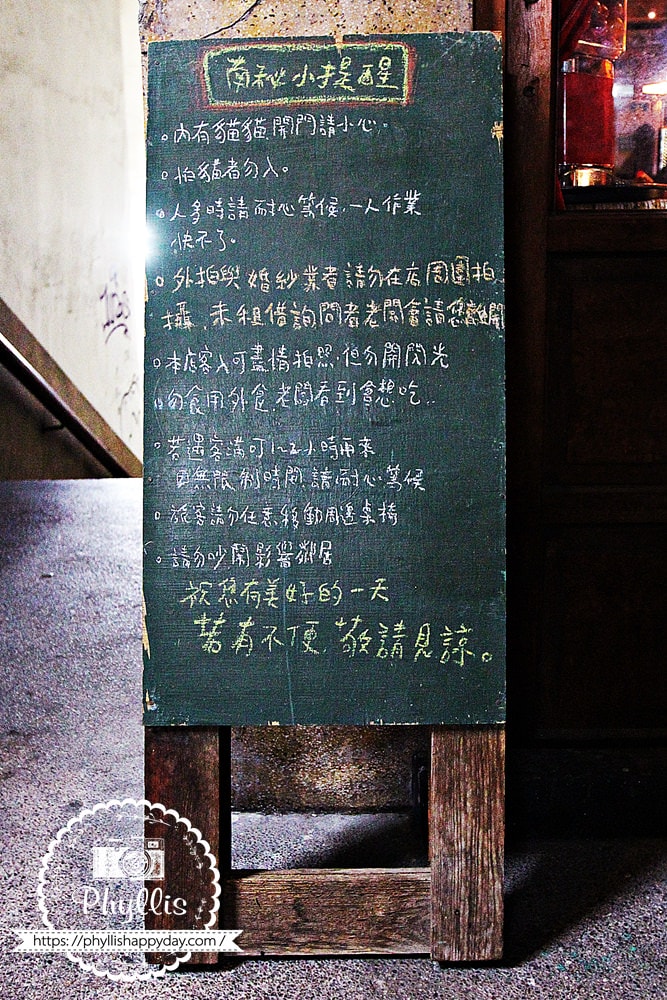 南秘小提醒
。內有貓貓,開門請小心。
。怕貓者勿入。
。人多時請耐心等候,一人作業
快不了。
。外拍與婚紗業者請勿在店周圍拍
攝,未租借詢問者老闆會請您離開
。本店客人可盡情拍照,但勿開閃光
。勿食用外食,老闆看到會想吃..
。若遇客滿可1~2小時再來
因無限制時間,請耐心等候
。旅客請勿任意移動周邊桌椅
。請勿吵鬧影響鄰居
祝您有美好的一天
若有不便,敬請見諒。
Phyllis
https://phyllishappyday.com/